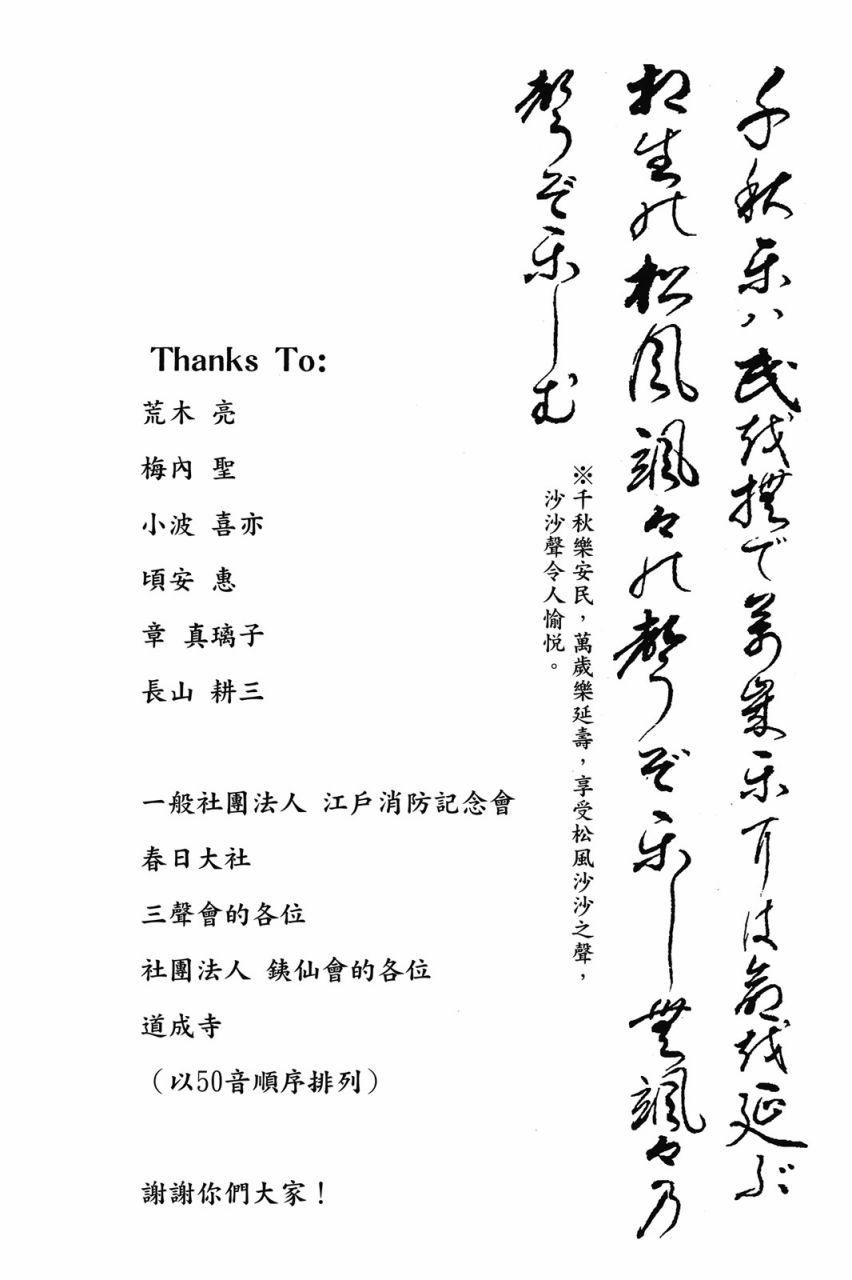 千秋楽ハ民越撫で萬歳楽耳は命越延ぶ
相生能松風颯々能聲ぞ楽し無颯々乃
聲ぞ楽しむ
※千秋樂安民，萬歲樂延壽，享受松風沙沙之聲，
沙沙聲令人愉悅。
Thanks To:
荒木 亮
梅內 聖
小波 喜亦
頃安 惠
章 真璃子
長山 耕三
一般社團法人 江戶消防記念會
春日大社
三聲會的各位
社團法人 銕仙會的各位
道成寺
（以50音順序排列）
謝謝你們大家！